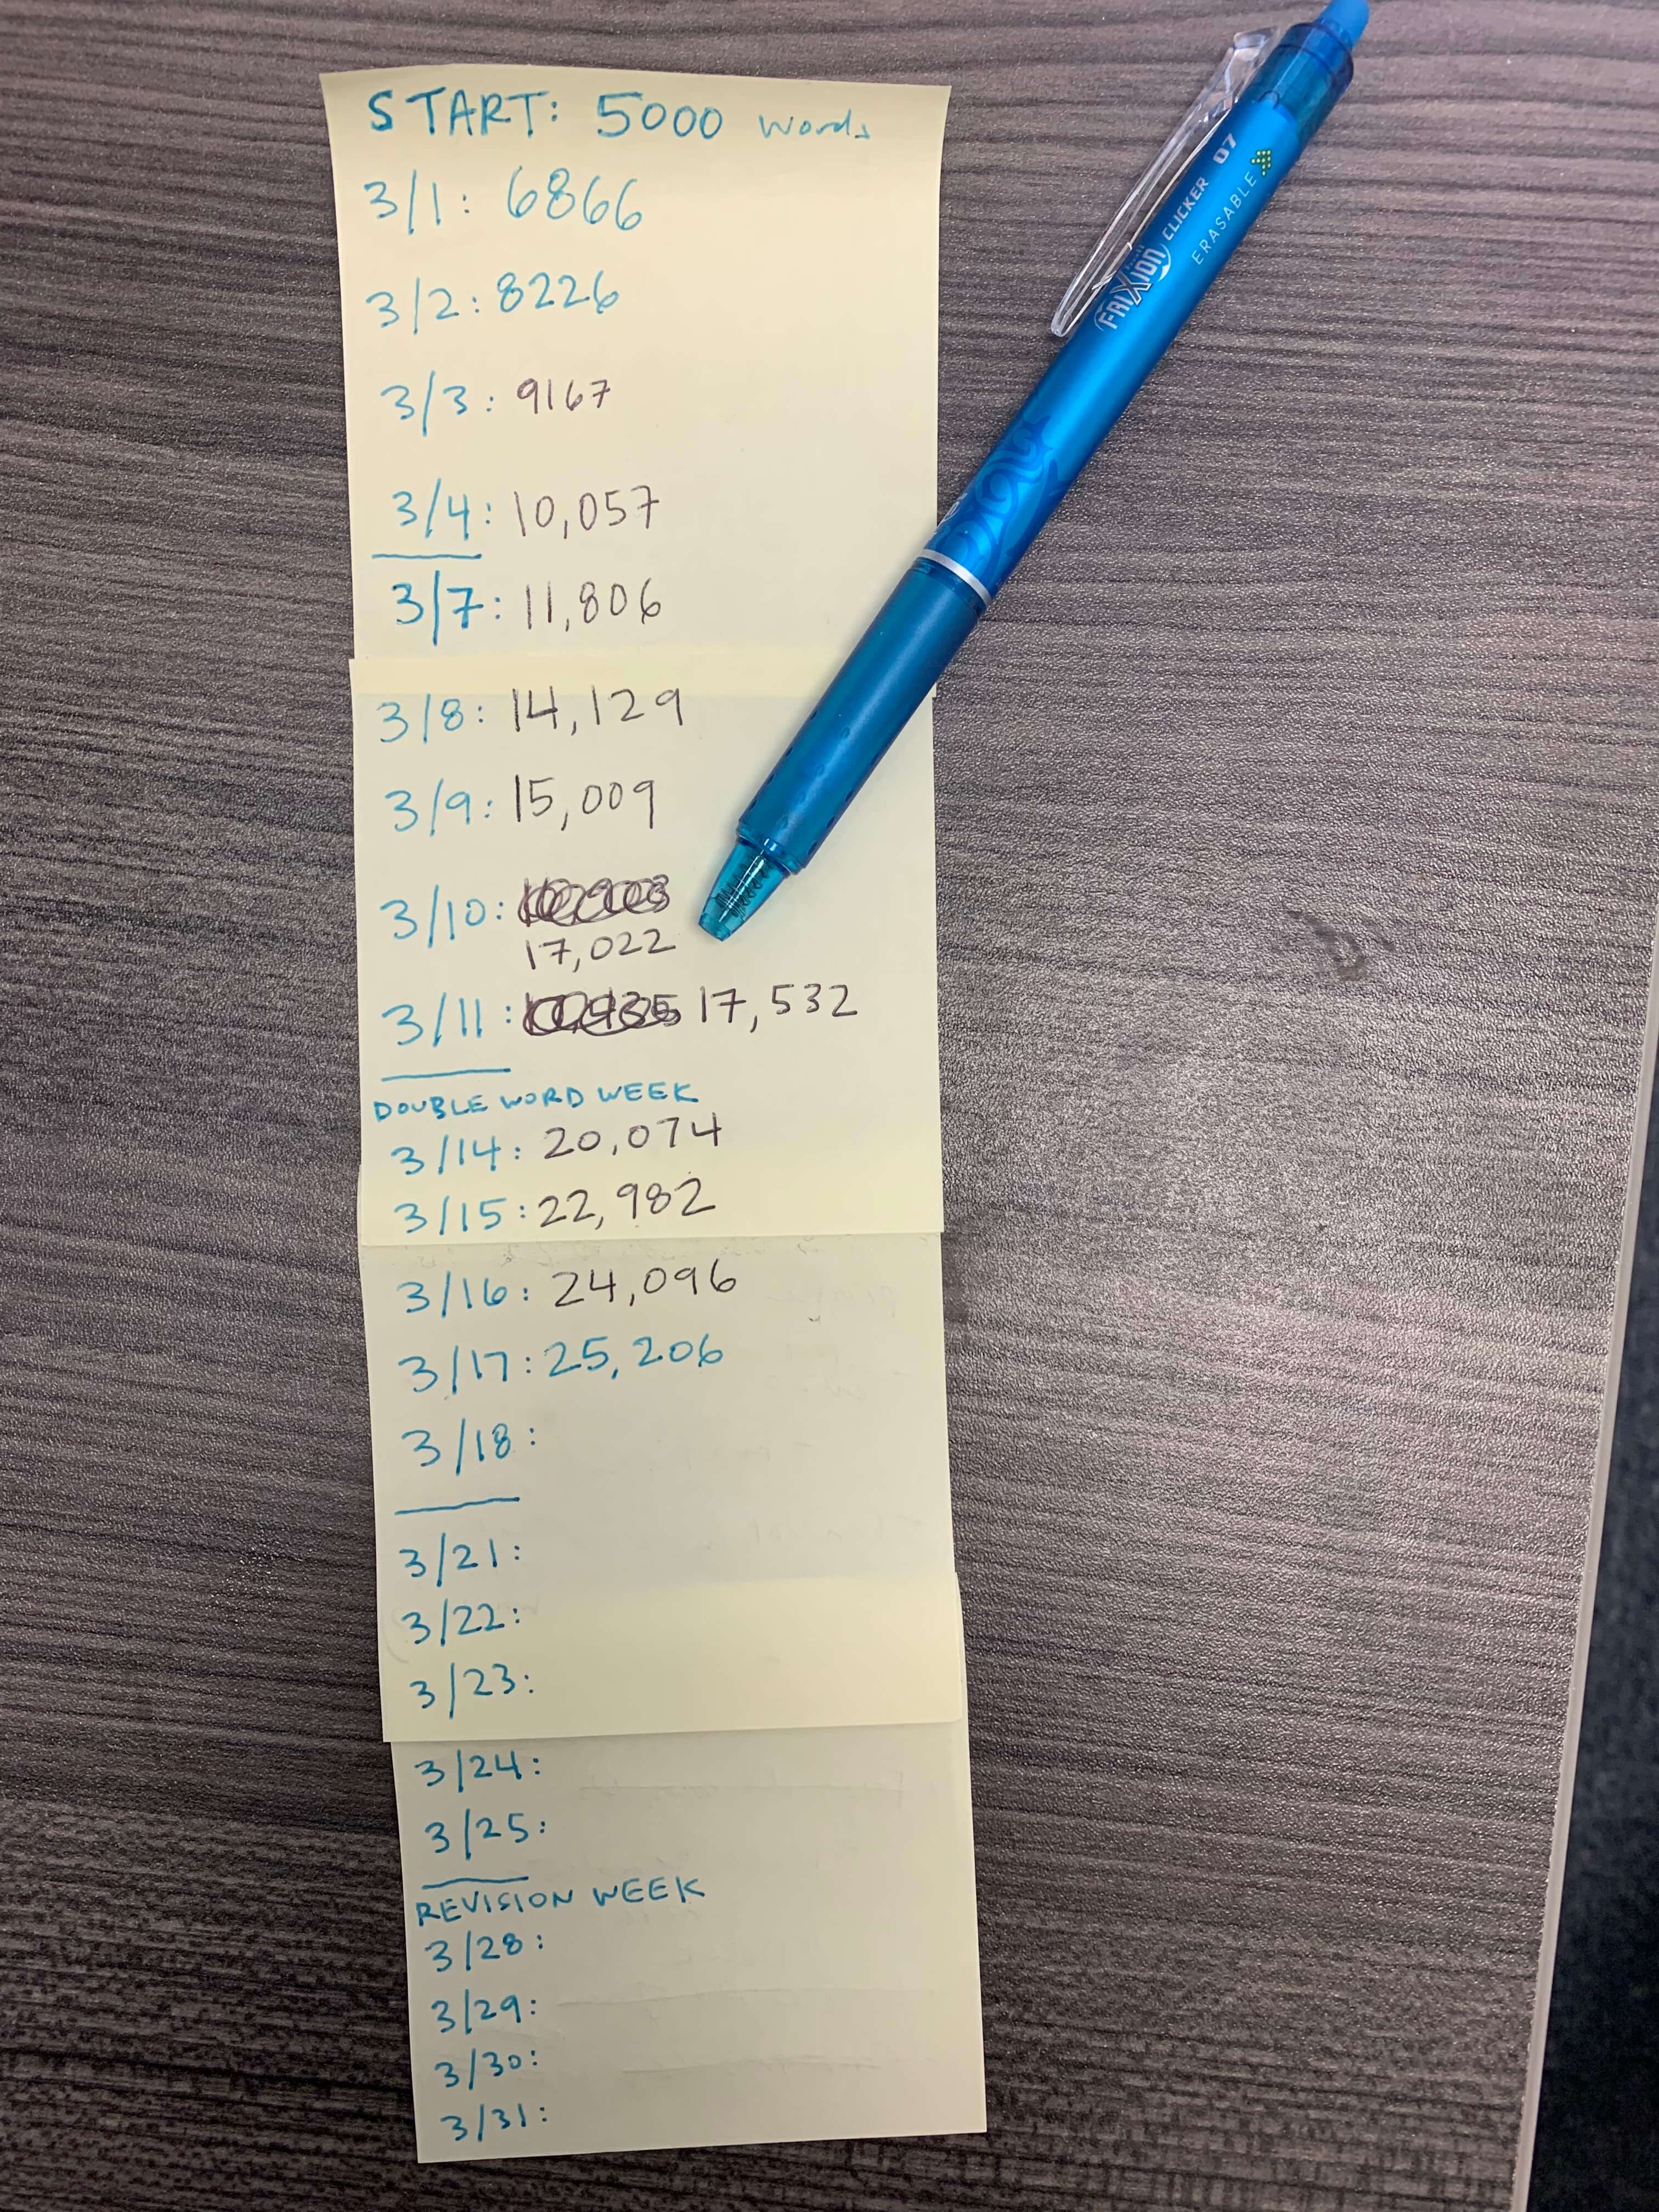 START: 5000 words
3/1: 6866
3/2: 8226
3/3: 9167
3/4: 10,057
3/7: 11,806
3/8: 14,129
3/9: 15,009
3/10:
17,022
3/11: 17,532
DOUBLE WORD WEEK
3/14: 20,074
3/15: 22,982
3/16: 24,096
3/17: 25,206
3/18:
3/21:
3/22:
3/23:
3/24:
3/25:
REVISION WEEK
3/28:
3/29:
3/30:
3/31:
FRIXION CLICKER 07
ERASABLE